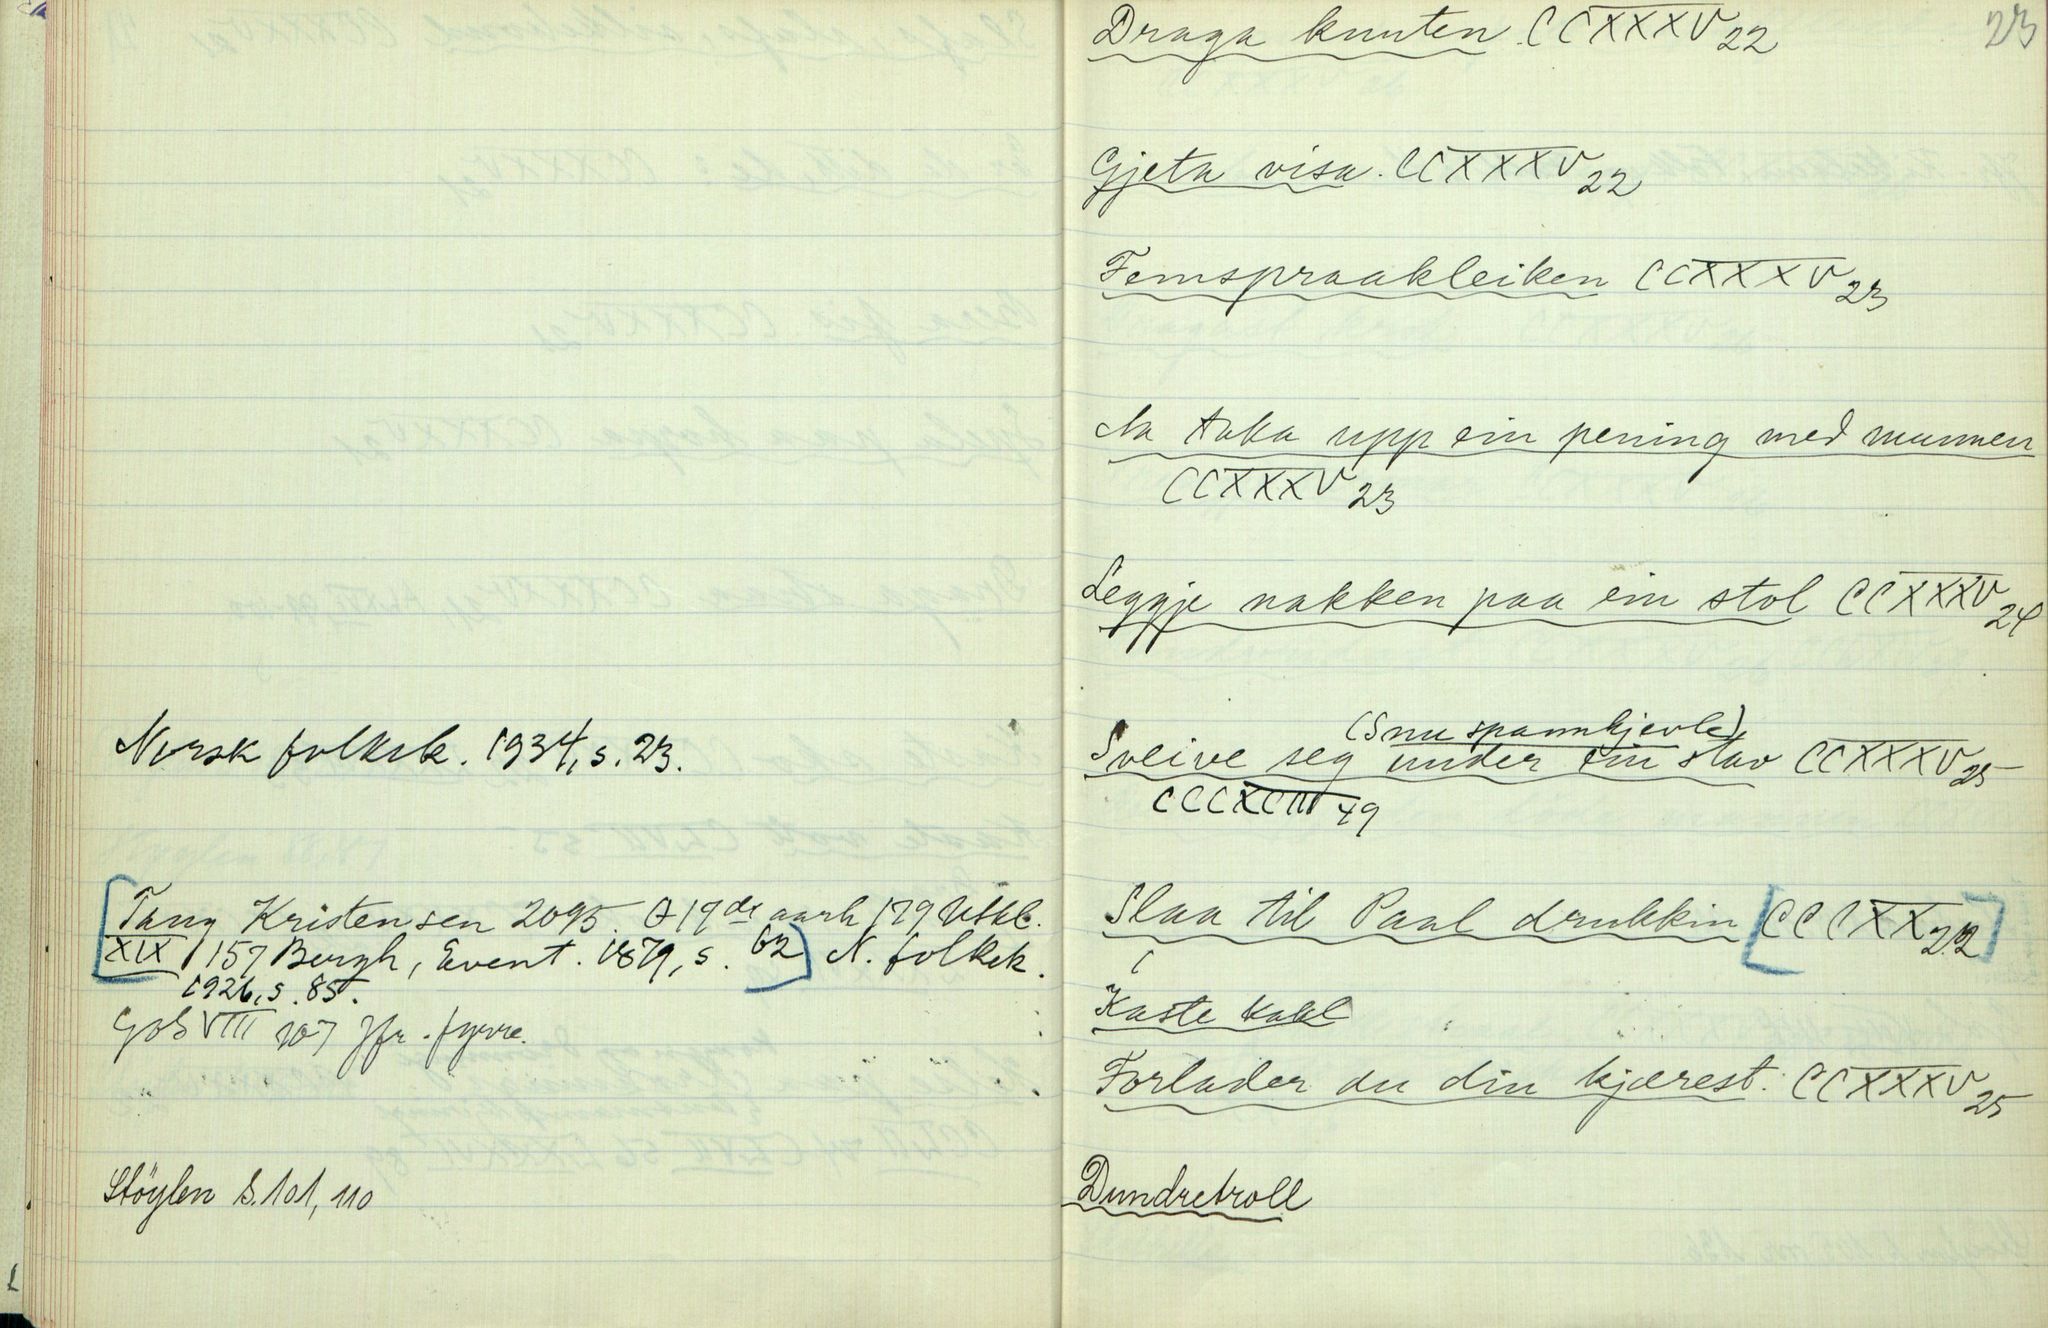 Norsk folkek. 1934, s. 23.
Tang Kristensen 2095. 17de aarh 179 Utkl.
XIX 157 Bergh, Event. 1879, s. 62 N. folkek.
1926, s. 85.
VIII 107 Jfr. fyrre.
Støylen S. 101, 110
23
Draga knuten. CCXXXV 22
Gjeta visa. CCXXXV 22
Femspraakleiken CCXXXV 23
Aa taka upp ein pening med munnen
CCXXXV 23
Leggje nakken paa ein stol CCXXXV 24
(Snu spannkjevle)
Sveive seg under ein stav CCXXXV 25
CCCXCIII 49
Slaa til Paal drukkin CCCXX 22
Kaste kabl
Forlader du din kjærest. CCXXXV 25
Dundretroll